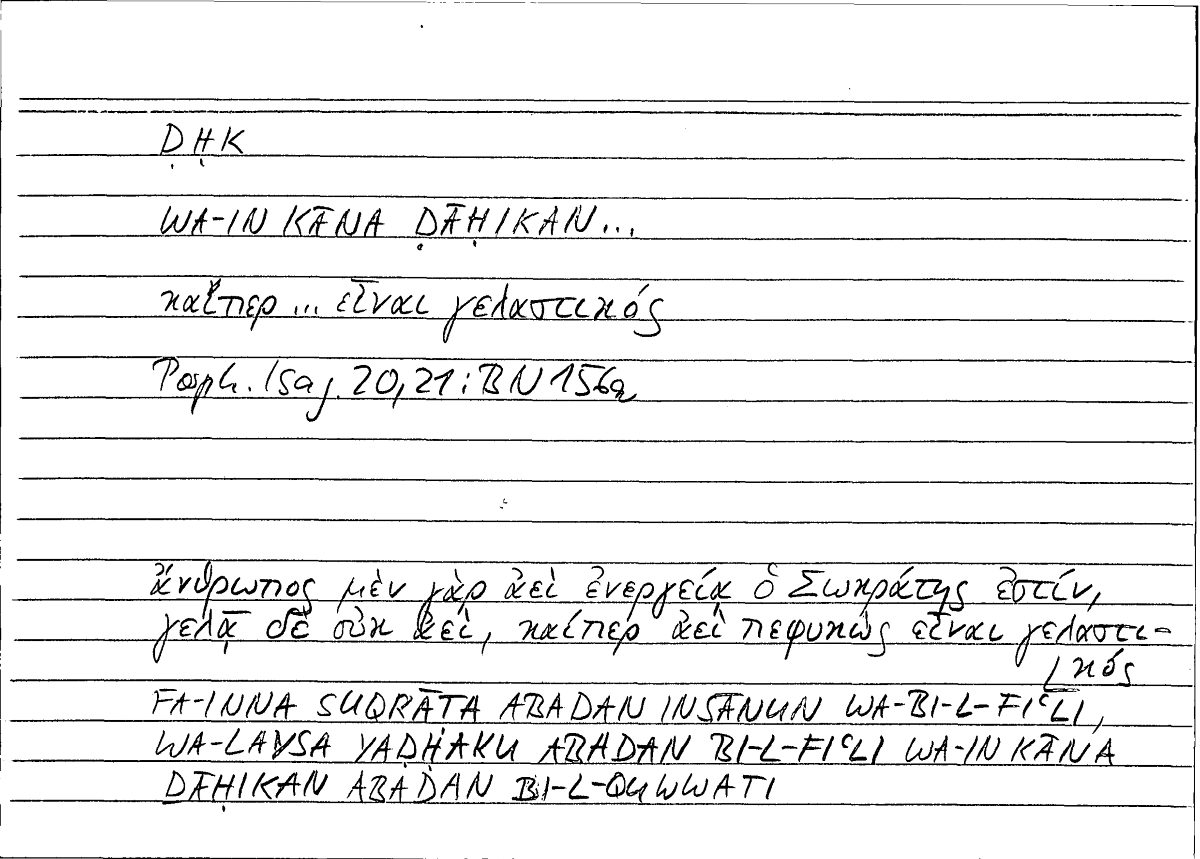 ḌḤK
WA-IN KĀNA ḌĀḤIKAN...
καίπερ ... εἶναι γελαστικός
Porph. Isag. 20,21 : BN 156a
ἄνθρωπος μὲν γὰρ ἀεὶ ἐνεργείᾳ ὁ Σωκράτης ἐστίν,
γελᾷ δὲ οὐκ ἀεί, καίπερ ἀεὶ πεφυκὼς εἶναι γελαστι-
κός
FA-INNA SUQRĀṬA ABADAN INSĀNUN WA-BI-L-FIʿLI,
WA-LAYSA YAḌḤAKU ABADAN BI-L-FIʿLI WA-IN KĀNA
ḌĀḤIKAN ABADAN BI-L-QUWWATI